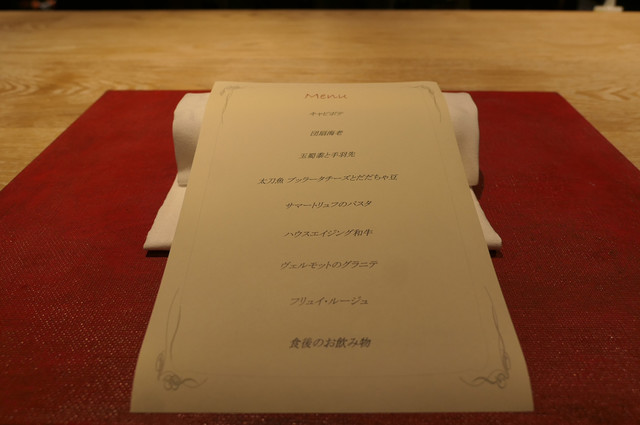 Menu
キャビア
団扇海老
玉蜀黍と手羽先
太刀魚 ブッラータチーズとだだちゃ豆
サマートリュフのパスタ
ハウスエイジング和牛
ヴェルモットのグラニテ
フリュイ・ルージュ
食後のお飲み物